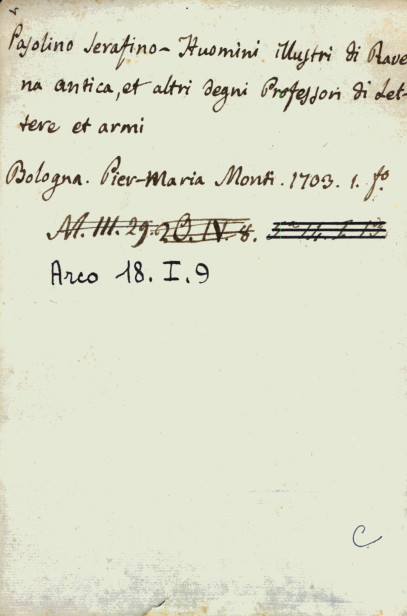 Pasolino Serafino - Huomini illustri di Rave
na antica, et altri degni Professori di Let-
tere et armi
Bologna. Pier-Maria Monti. 1703. 1. fo.
M. III. 29. 20. IV. 8.
Arco 18. I. 9
C